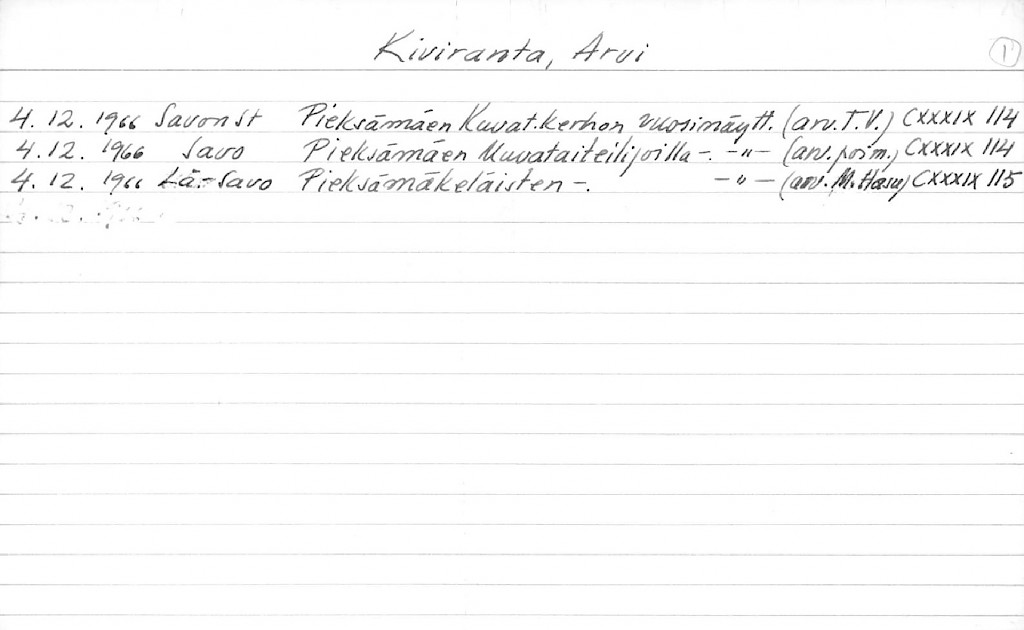 Kiviranta, Arvi 1
4.12.1966 Savon St Pieksämäen Kuvat.kerhon vuosinäytt. (arv. T.V.) CXXXIX 114
4.12.1966 Savo Pieksämäen Kuvataiteilijoilla -. -"- (arv. poim.) CXXXIX 114
4.12.1966 Lä.-Savo Pieksämäkeläisten -. -"- (arv. M. Hasu) CXXXIX 115